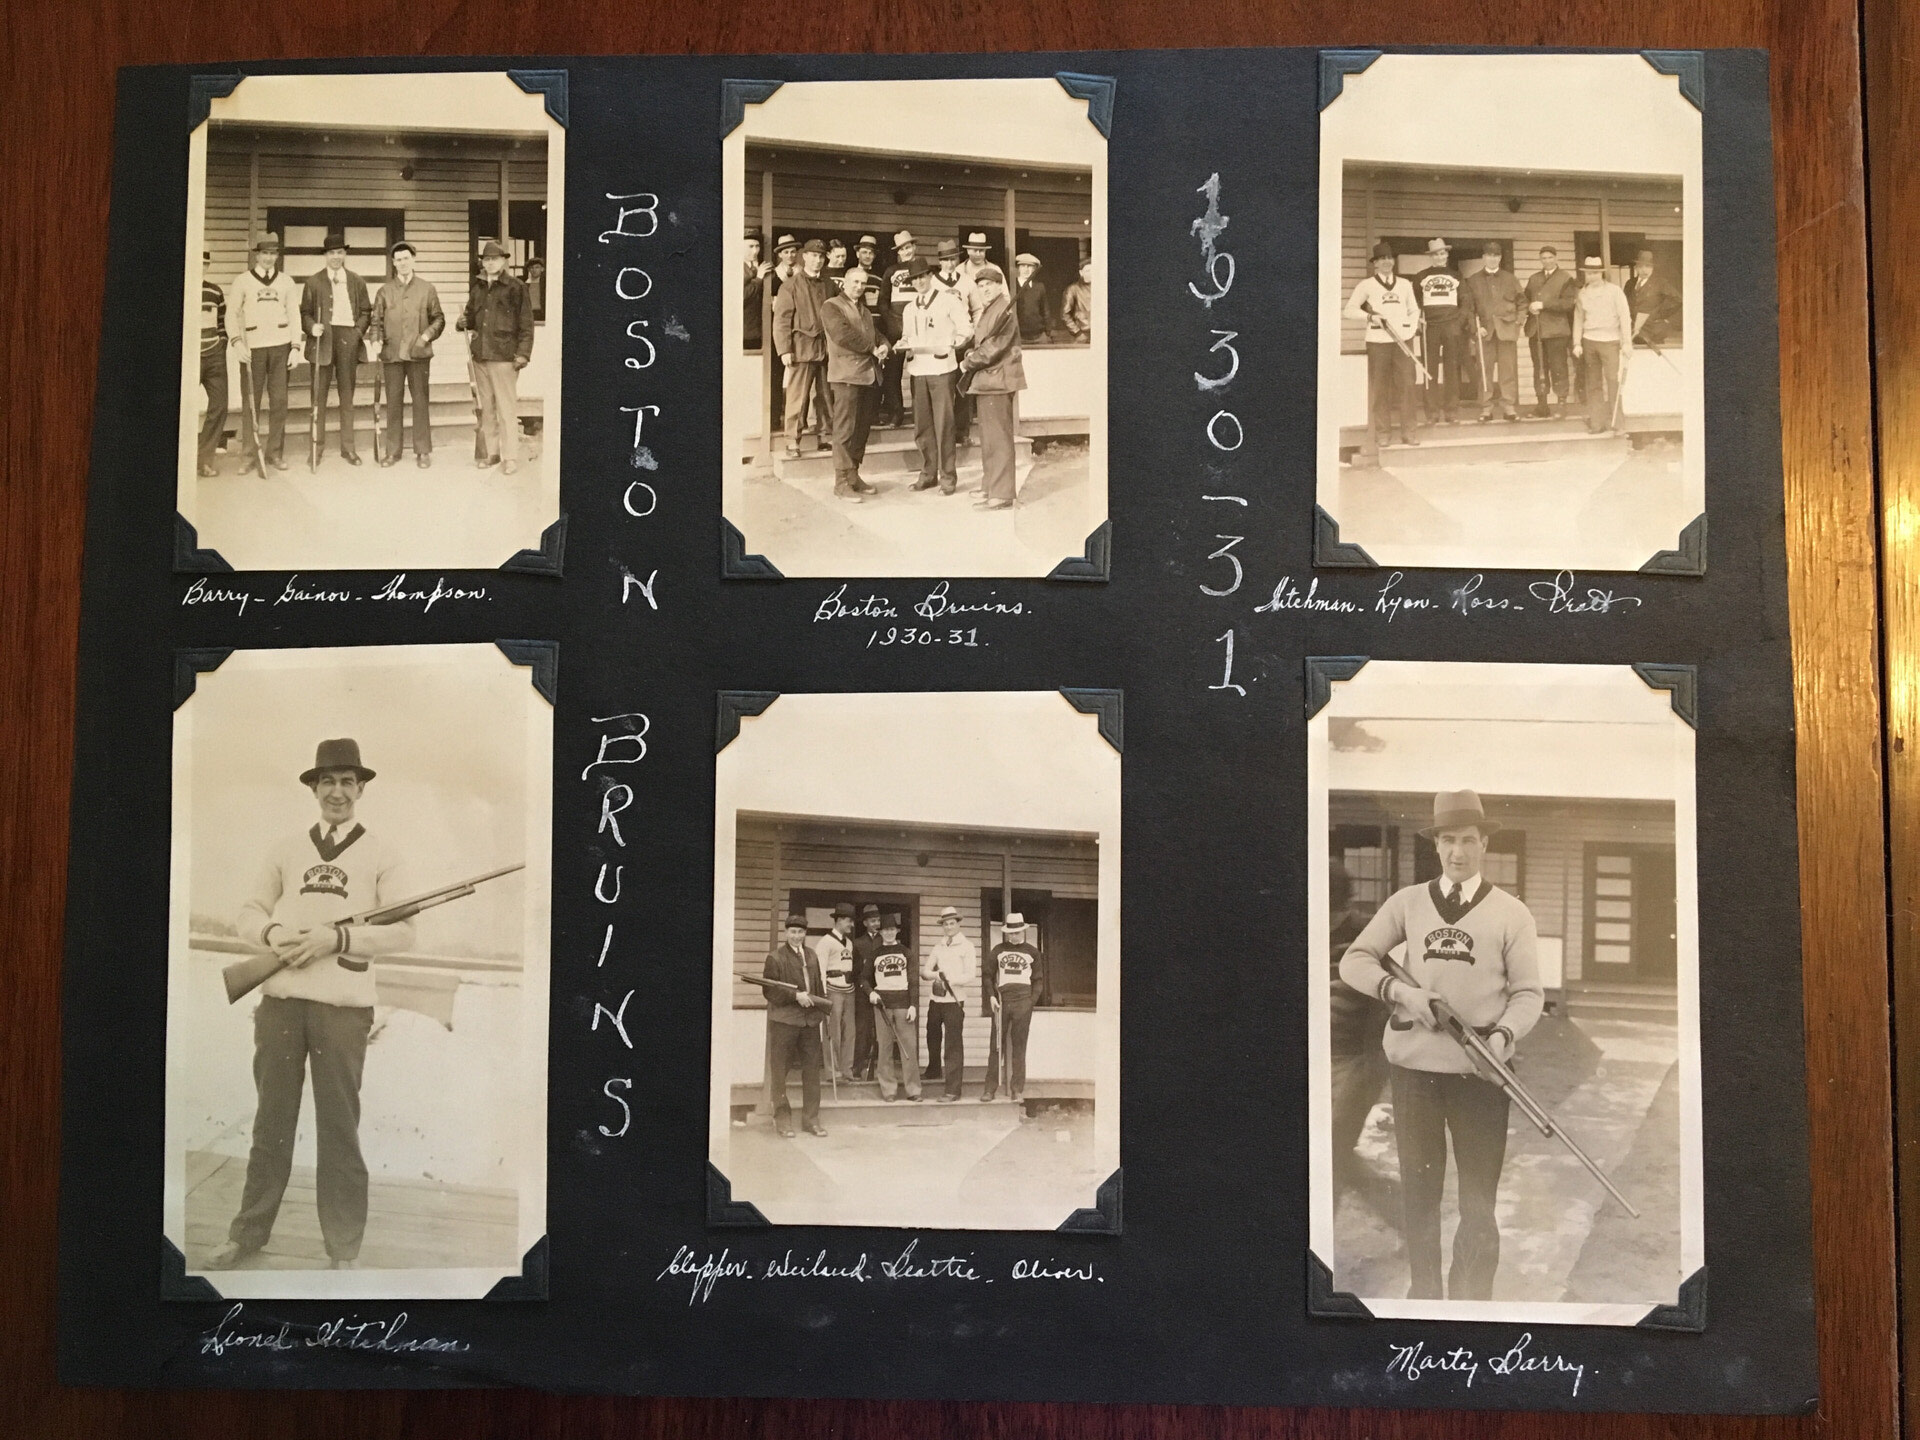 BOSTON
BRUINS
1930-31.
Barry - Gainor - Thompson.
Boston Bruins.
1930-31.
Hitchman - Lyon - Ross - Pratt.
Lionel Hitchman
Clapper - Weiland - Beattie - Oliver.
Marty Barry.
BOSTON
BRUINS
BOSTON
BOSTON
BOSTON
BRUINS